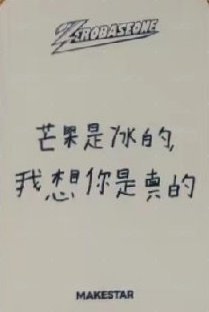 ZEROBASEONE
芒果是冰的,
我想你是真的
MAKESTAR